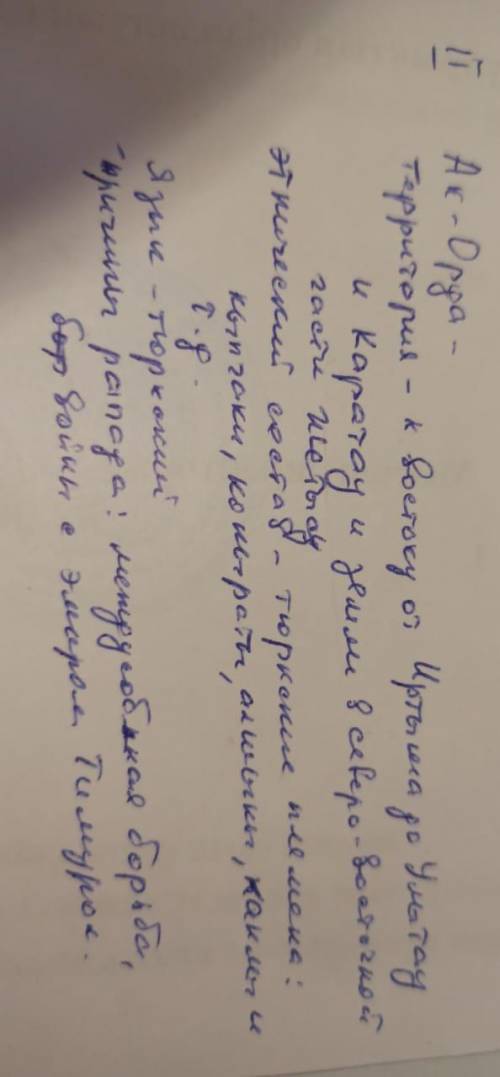 II
Ак-Орда -
территория - к востоку от Иртыша до Улытау
и Каратау и земли в северо-восточной
части Жетысу
этнический состав - тюркские племена:
кыпчаки, коныраты, алшыны, канлы и
т.д.
Язык - тюркский
- причины рапада: междусобная борьба,
войны с эмиром Тимуром.